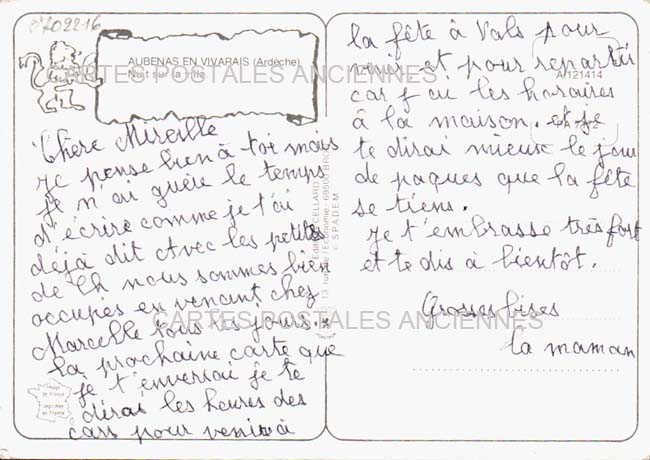 0702216
AUBENAS EN VIVARAIS (Ardèche)
Nuit sur la ville
CARTES POSTALES ANCIENNES
A 121414
Chère Mireille
je pense bien à toi mais
je n'ai guère le temps
d'écrire comme je t'ai
déjà dit Avec les petites
de Ch nous sommes bien
occupés en venant chez
Marcelle tous les jours.
la prochaine carte que
je t'enverrai je te
dirai les heures des
cars pour venir à
la fête à Vals pour
venir et pour repartir
car j'ai les horaires
à la maison. et je
te dirai mieux le jour
de paques que la fête
se tiens.
je t'embrasse très fort
et te dis à bientôt.
Grosses bises
la maman
CARTES POSTALES ANCIENNES
S.P.A.D.E.M.
image
de France
imprimée
en France